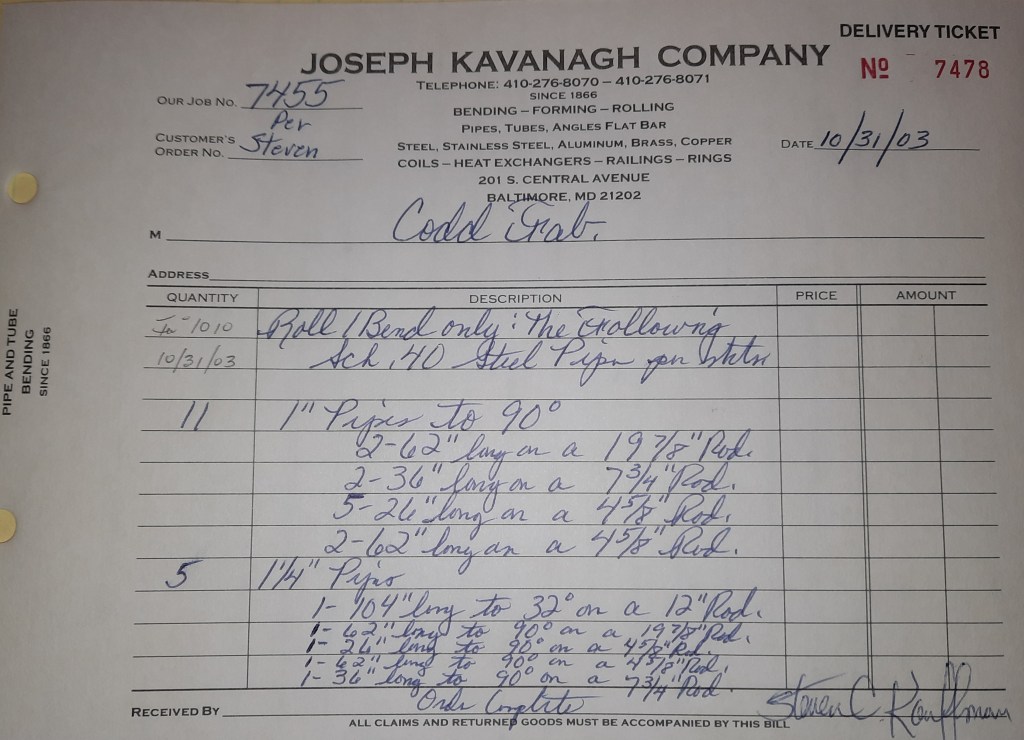 DELIVERY TICKET
JOSEPH KAVANAGH COMPANY
Nº 7478
TELEPHONE: 410-276-8070 – 410-276-8071
SINCE 1866
OUR JOB NO. 7455
BENDING – FORMING – ROLLING
Per
PIPES, TUBES, ANGLES FLAT BAR
CUSTOMER'S ORDER NO. Steven
STEEL, STAINLESS STEEL, ALUMINUM, BRASS, COPPER
DATE 10/31/03
COILS – HEAT EXCHANGERS – RAILINGS – RINGS
201 S. CENTRAL AVENUE
BALTIMORE, MD 21202
M Codd Fab.
ADDRESS
QUANTITY DESCRIPTION PRICE AMOUNT
1010 Roll / Bend only : The Following
10/31/03 Sch. 40 Steel Pipe per
11 1" Pipes to 90°
2-62" long on a 19 7/8" Rad.
2-36" long on a 7 3/4" Rad.
5-26" long on a 4 5/8" Rad.
2-62" long on a 4 5/8" Rad.
5 1 1/4" Pipes
1- 104" long to 32° on a 12" Rad.
1- 62" long to 90° on a 19 7/8" Rad.
1- 26" long to 90° on a 4 5/8" Rad.
1- 62" long to 90° on a 4 5/8" Rad.
1- 36" long to 90° on a 7 3/4" Rad.
Order Complete
RECEIVED BY Steven C. Kauffman
ALL CLAIMS AND RETURNED GOODS MUST BE ACCOMPANIED BY THIS BILL
PIPE AND TUBE
BENDING
SINCE 1866